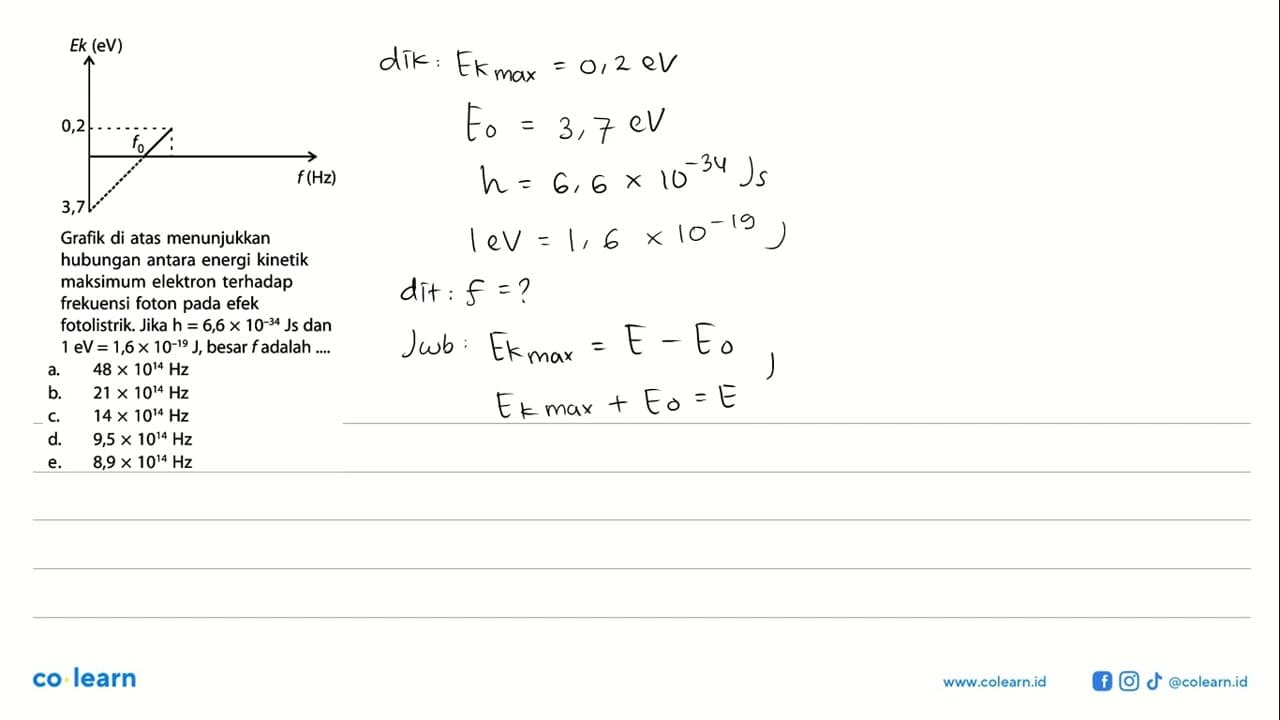 Ek (eV)
0,2
f₀
f (Hz)
3,7
Grafik di atas menunjukkan
hubungan antara energi kinetik
maksimum elektron terhadap
frekuensi foton pada efek
fotolistrik. Jika h = 6,6 × 10⁻³⁴ Js dan
1 eV = 1,6 × 10⁻¹⁹ J, besar f adalah ....
a. 48 × 10¹⁴ Hz
b. 21 × 10¹⁴ Hz
c. 14 × 10¹⁴ Hz
d. 9,5 × 10¹⁴ Hz
e. 8,9 × 10¹⁴ Hz
dik : Ek max = 0,2 eV
E₀ = 3,7 eV
h = 6,6 × 10⁻³⁴ Js
1 eV = 1,6 × 10⁻¹⁹ J
dit : f = ?
Jwb : Ek max = E – E₀
Ek max + E₀ = E
co·learn
www.colearn.id
@colearn.id